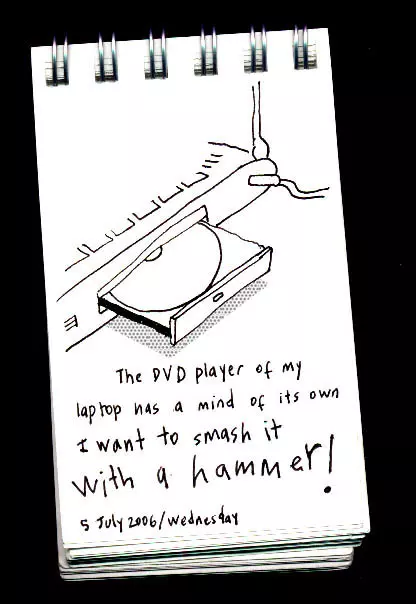 The DVD player of my
laptop has a mind of its own
I want to smash it
with a hammer!
5 July 2006/wednesday